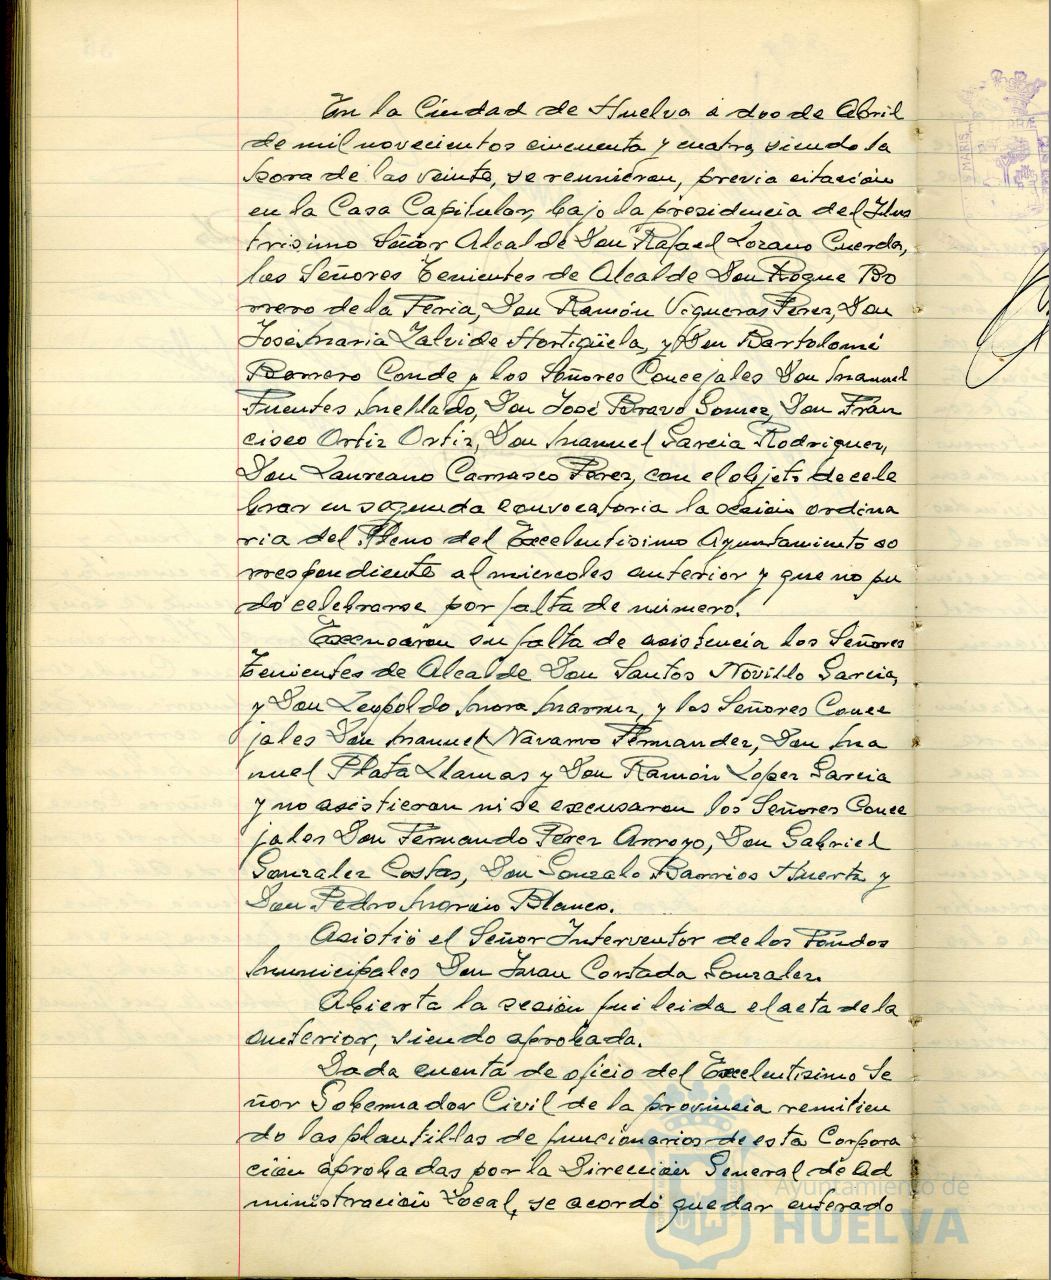 En la Ciudad de Huelva a dos de Abril
de mil novecientos cincuenta y cuatro, siendo la
hora de las veinte, se reunieron, previa citación
en la Casa Capitular, bajo la presidencia del Ilus
trisimo Señor Alcalde Don Rafael Lozano Cuerda,
los Señores Tenientes de Alcalde Don Roque Bo
rrero de la Feria, Don Ramón Vigueras Perez, Don
José Maria Zalvide Hortigüela, y Don Bartolomé
Borrero Conde y los Señores Concejales Don Manuel
Fuentes Mellado, Don José Bravo Gomez, Don Fran
cisco Ortiz Ortiz, Don Manuel Garcia Rodriguez,
Don Laureano Carrasco Perez, con el objeto de cele
brar en segunda convocatoria la sesión ordina
ria del Pleno del Excelentisimo Ayuntamiento co
rrespondiente al miercoles anterior y que no pu
do celebrarse por falta de número.
Excusaron su falta de asistencia los Señores
Tenientes de Alcalde Don Santos Novillo Garcia,
y Don Leopoldo Mora Marruz, y los Señores Conce
jales Don Manuel Navarro Fernandez, Don Ma
nuel Plata Llamas y Don Ramón Lopez Garcia
y no asistieron ni se excusaron los Señores Conce
jales Don Fernando Perez Arroyo, Don Gabriel
Gonzalez Costas, Don Gonzalo Barrios Huerta y
Don Pedro Blanco.
Asistió el Señor Interventor de los Fondos
Municipales Don Juan Contada Gonzalez.
Abierta la sesión fué leida el acta de la
anterior, siendo aprobada.
Dada cuenta de oficio del Excelentisimo Se
ñor Gobernador Civil de la provincia remitien
do las plantillas de funcionarios de esta Corpora
ción aprobadas por la Dirección General de Ad
ministración Local, se acordó quedar enterado
Ayuntamiento de
HUELVA